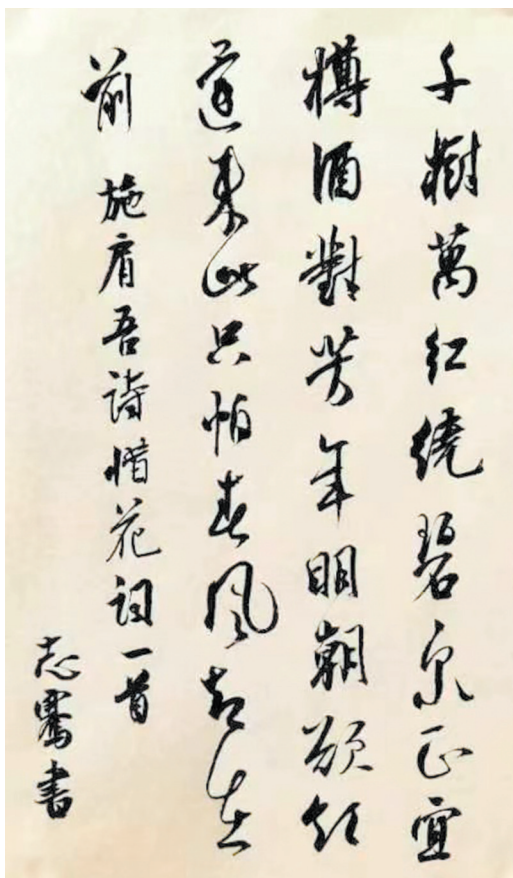 千樹萬紅繞碧泉正宜
樽酒對芳年明朝欲飲
還來此只怕春風却在
前 施肩吾詩惜花詞一首
志騫書